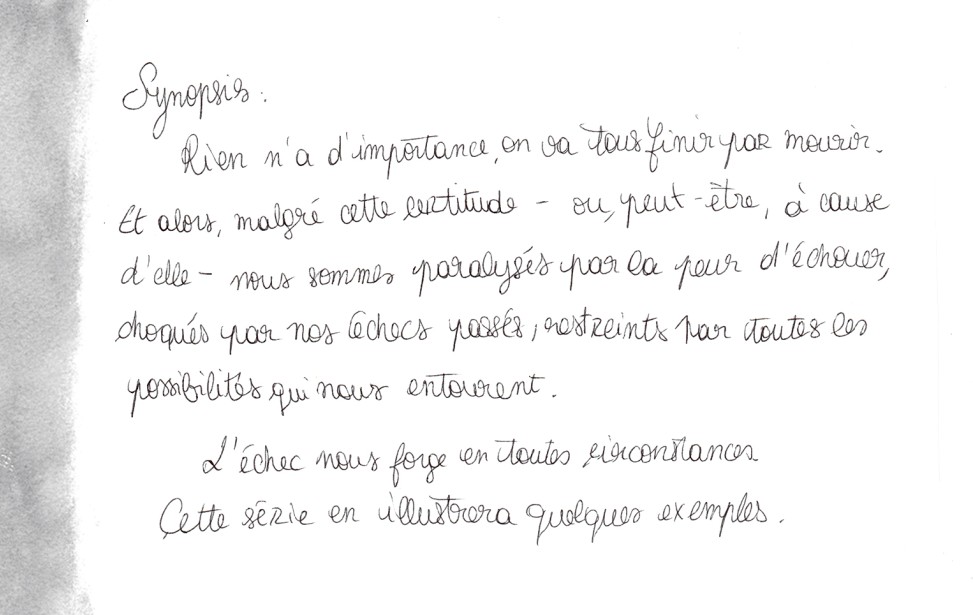 Synopsis :
Rien n'a d'importance, on va tous finir par mourir.
Et alors, malgré cette certitude - ou, peut-être, à cause
d'elle - nous sommes paralysés par la peur d'échouer,
choqués par nos échecs passés, restreints par toutes les
possibilités qui nous entourent.
L'échec nous forge en toutes circonstances
Cette série en illustrera quelques exemples.